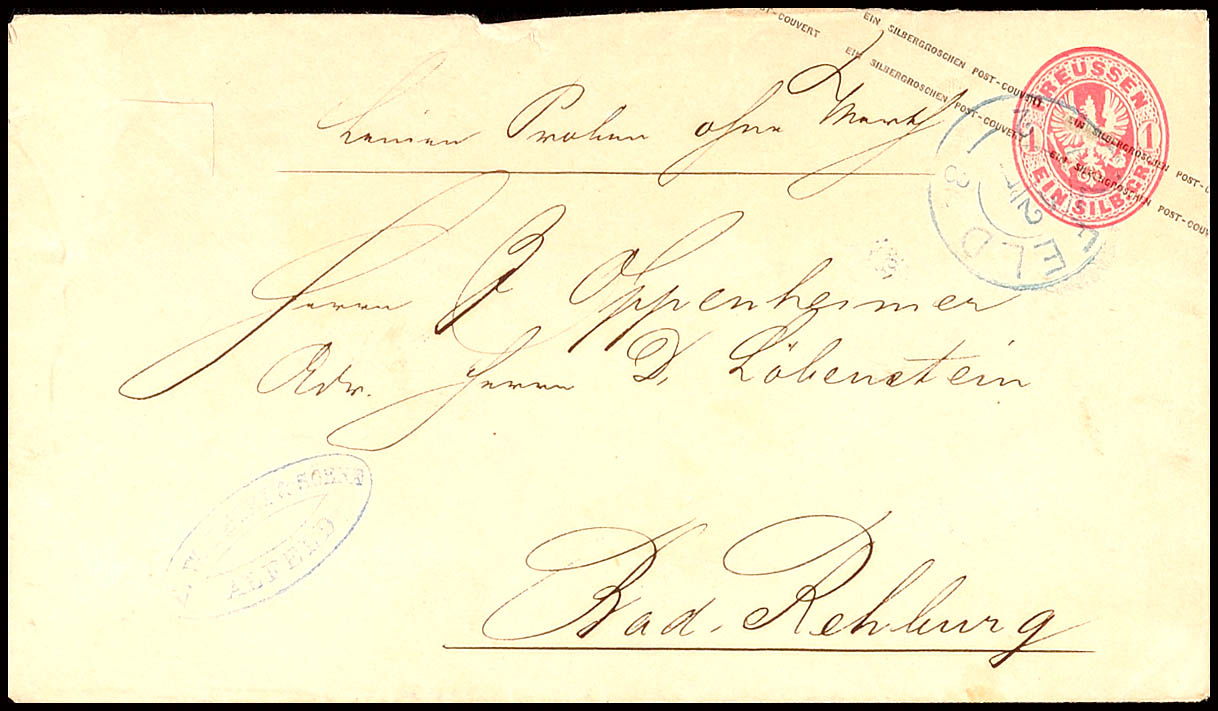 EIN SILBERGROSCHEN POST-COUVERT EIN SILBERGROSCHEN POST-C
POST-COUVERT EIN SILBERGROSCHEN POST-COUVERT EIN SILBERGROSCHEN POST-COUV
PREUSSEN
1 1
EIN SILBERGR.
Leinen Proben ohne Werth
ELD
Herrn J Oppenheimer
Adr. Herrn D. Löbenstein
SÖHNE
ALFELD
Bad. Rehburg